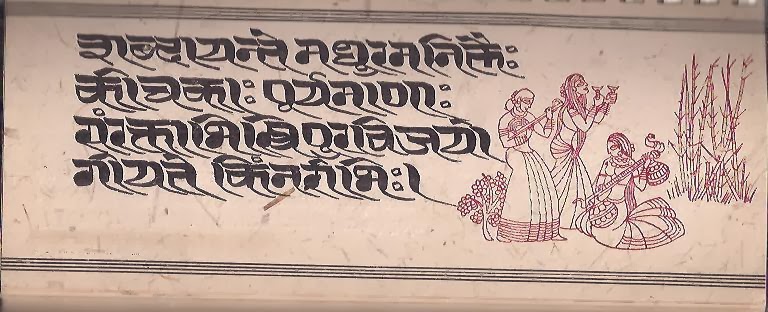 शब्दायन्ते मधुरमनिलैः
कीचकाः पूर्यमाणाः
संरक्ताभिस्त्रिपुरविजयो
गीयते किंनरीभिः।